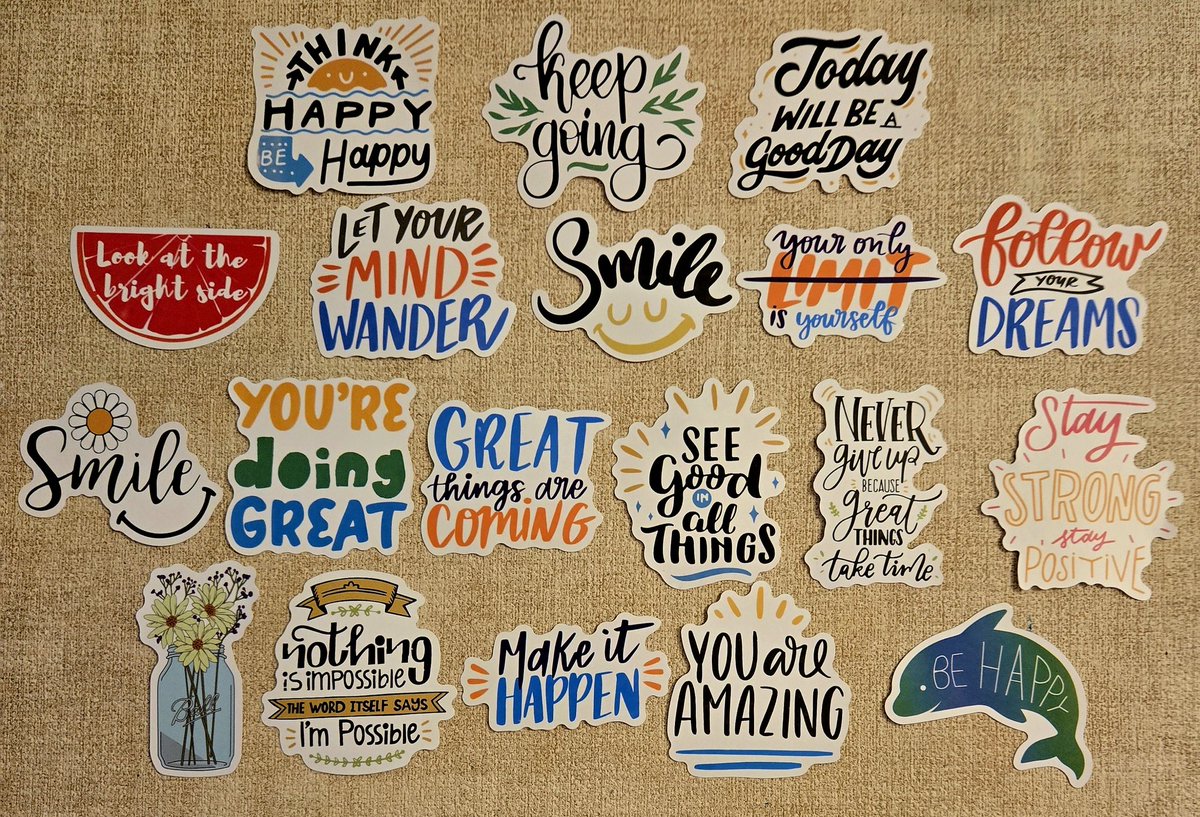 THINK
HAPPY
BE Happy
keep
going
Today
WILL BE A
Good Day
Look at the
bright side
LET YOUR
MIND
WANDER
Smile
your only
LIMIT
is yourself
follow
YOUR
DREAMS
Smile
YOU'RE
doing
GREAT
GREAT
things are
COMING
SEE
Good
IN
all
THINGS
NEVER
give up
BECAUSE
great
THINGS
take time
Stay
STRONG
stay
POSITIVE
Ball
nothing
IS IMPOSSIBLE
THE WORD ITSELF SAYS
I'm Possible
Make it
HAPPEN
YOU are
AMAZING
BE HAPPY